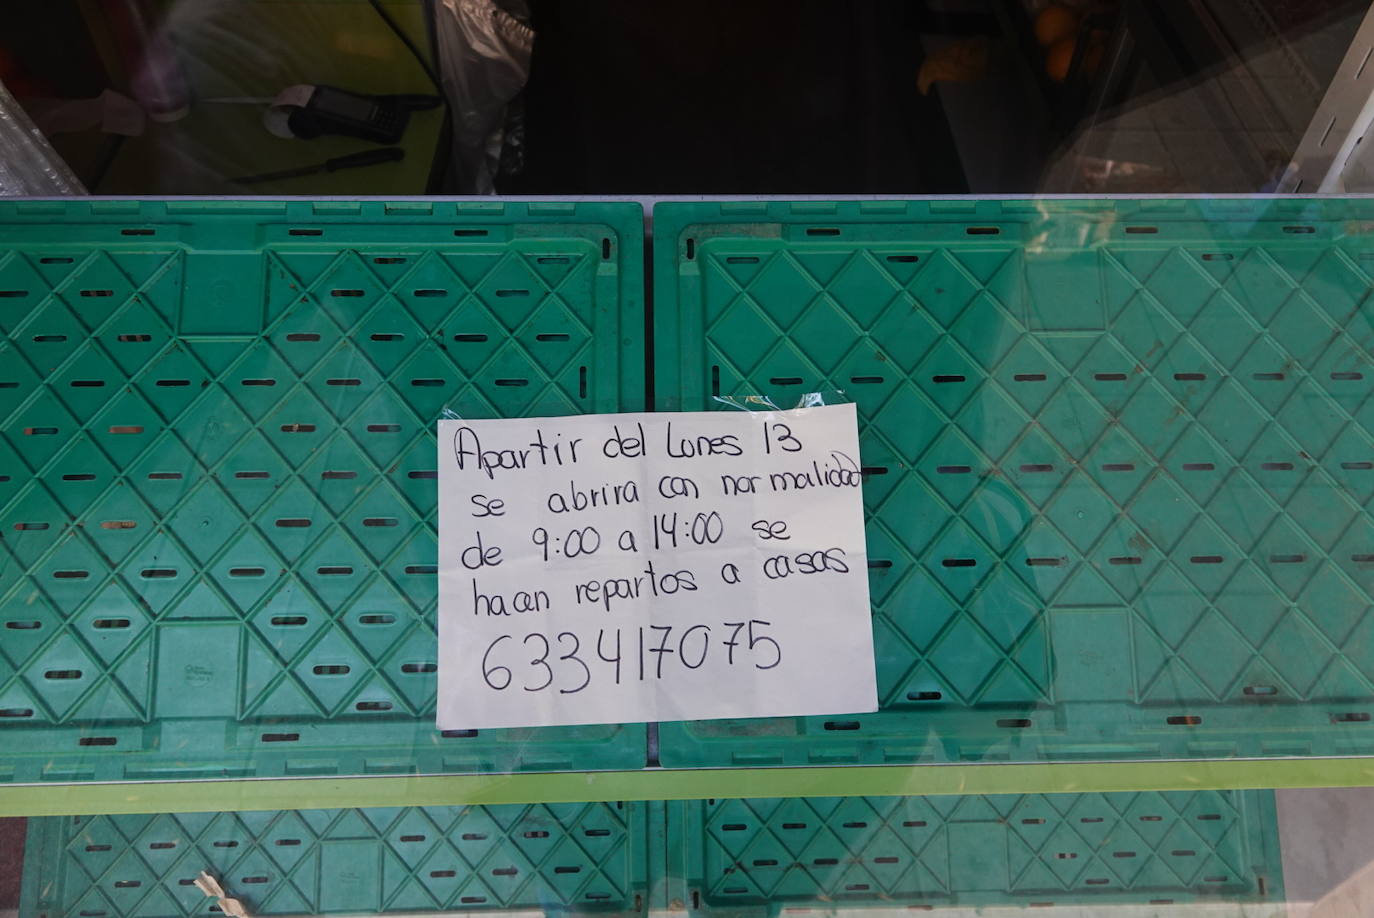 Apartir del Lunes 13
se abrira con normalidad
de 9:00 a 14:00 se
hacen repartos a casas
633417075